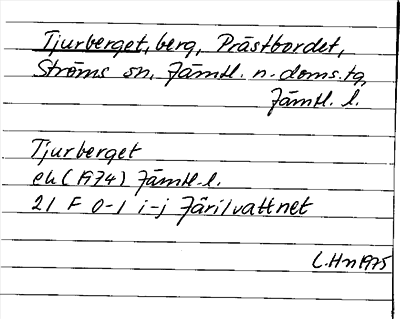 Tjurberget, berg, Prästbordet,
Ströms sn, Jämtl. n. doms.tg,
Jämtl. l.
Tjurberget
ek (1974) Jämtl. l.
21 F 0-1 i-j Järilvattnet
L.Hn 1975